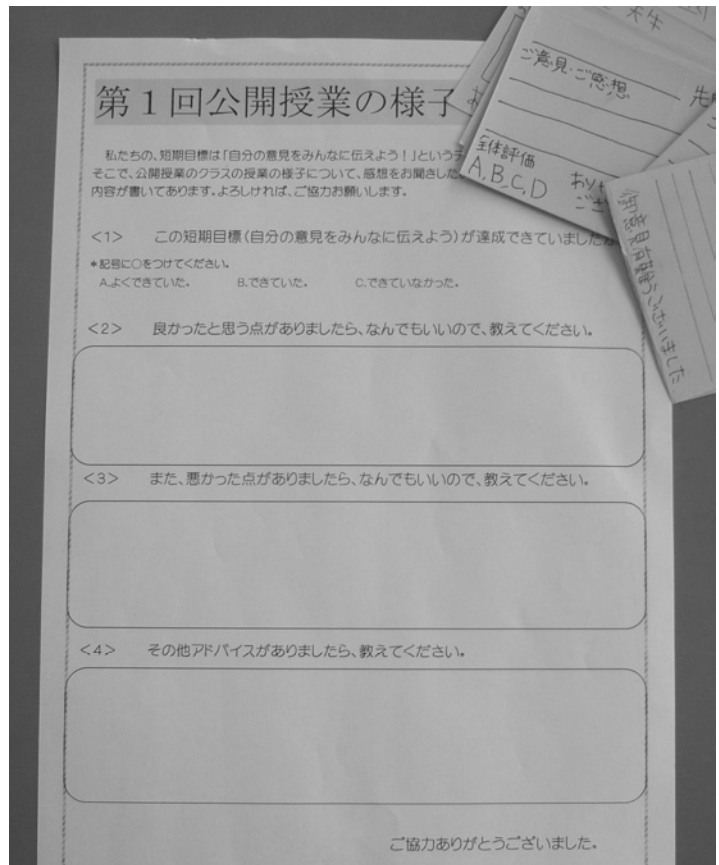 第1回公開授業の様子
私たちの、短期目標は「自分の意見をみんなに伝えよう!」という
そこで、公開授業のクラスの授業の様子について、感想をお聞きした
内容が書いてあります。よろしければ、ご協力お願いします。
<1> この短期目標(自分の意見をみんなに伝えよう)が達成できていました
*記号に○をつけてください。
A.よくできていた。 B.できていた。 C.できていなかった。
<2> 良かったと思う点がありましたら、なんでもいいので、教えてください。
<3> また、悪かった点がありましたら、なんでもいいので、教えてください。
<4> その他アドバイスがありましたら、教えてください。
ご協力ありがとうございました。
ご意見・ご感想
全体評価
A,B,C,D
御意見有難うございました